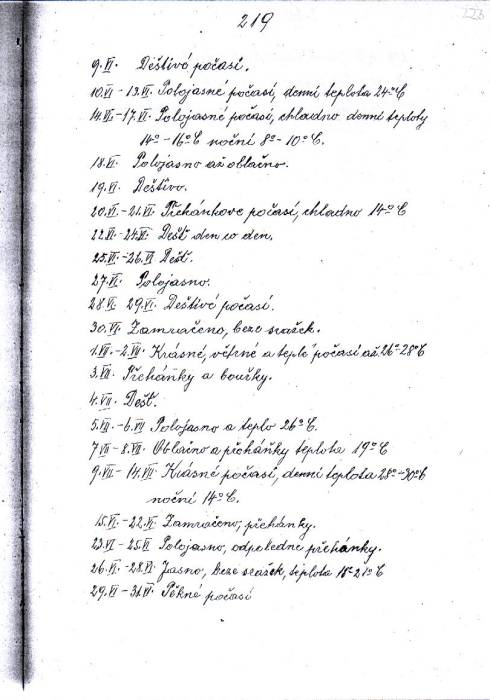 219
223
9.VI. Deštivé počasí.
10.VI - 13.VI. Polojasné počasí, denní teplota 24°C
14.VI. - 17.VI. Polojasné počasí, chladno denní teploty
14° - 16°C noční 8° - 10°C.
18.VI. Polojasno až oblačno.
19.VI. Deštivo.
20.VI. - 21.VI. Přehánkove počasí, chladno 14°C
22.VI. - 24.VI. Dešť den co den.
25.VI. - 26.VI Dešť.
27.VI. Polojasno.
28.VI. 29.VI. Deštivé počasí.
30.VI. Zamračeno, beze sražek.
1.VII. - 2.VII. Krásné, větrné a teplé počasí až 26° - 28°C
3.VII. Přeháňky a bouřky.
4.VII. Dešť.
5.VII. - 6.VII Polojasno a teplo 26°C.
7.VII - 8.VII. Oblačno a přeháňky teplota 19°C.
9.VII - 14.VII Krásné počasí, denní teplota 28° - 30°C
noční 14°C.
15.VI. - 22.VI. Zamračeno, přehánky.
23.VI - 25.VI Polojasno, odpoledne přehánky.
26.VI. - 28.VI Jasno, beze sražek, teplota 21°C
29.VI - 31.VI. Pěkné počasí